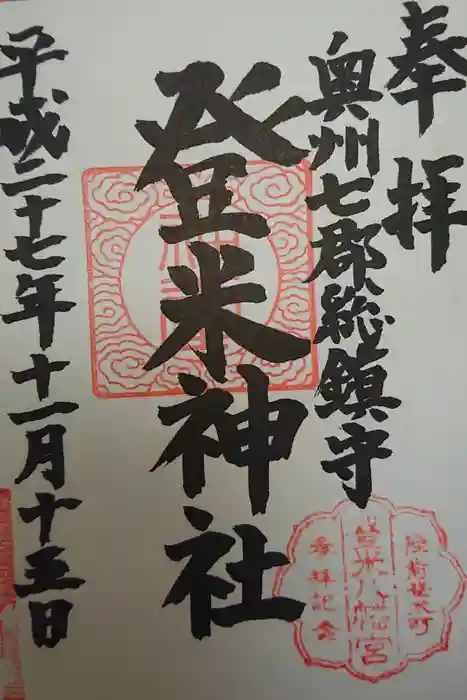 奉拝
奥州七郡総鎮守
登米神社
平成二十七年十一月十五日
陸前登米町
登米八幡宮
参拝記念